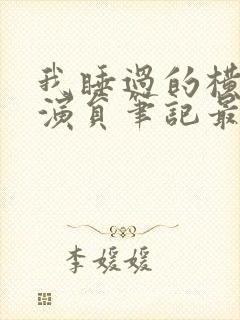 我睡过的横
演員筆記最
李媛媛